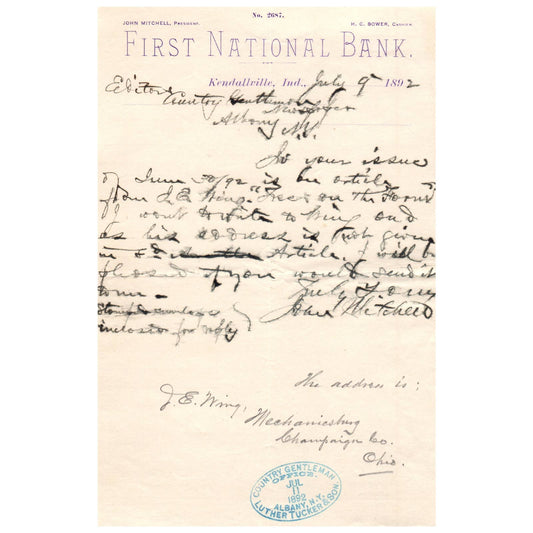 No. 2687.
JOHN MITCHELL, PRESIDENT.
H. C. BOWER, CASHIER.
FIRST NATIONAL BANK.
Kendallville, Ind., July 9 1892
Editors
Country Gentleman
Albany N.Y.
In your issue
of June 30/92 is an article
from J. E. Wing "Trees on the Farm"
I want to write to Wing and
as his address is not given
in Article. I will be
pleased if you would send it
to me - Truly Yours
John Mitchell
Stamped envelope
inclosed for reply
The address is:
J. E. Wing,
Mechanicsburg
Champaign Co.
Ohio.
COUNTRY GENTLEMAN
OFFICE.
JUL
11
1892
ALBANY, N.Y.
LUTHER TUCKER & SON.